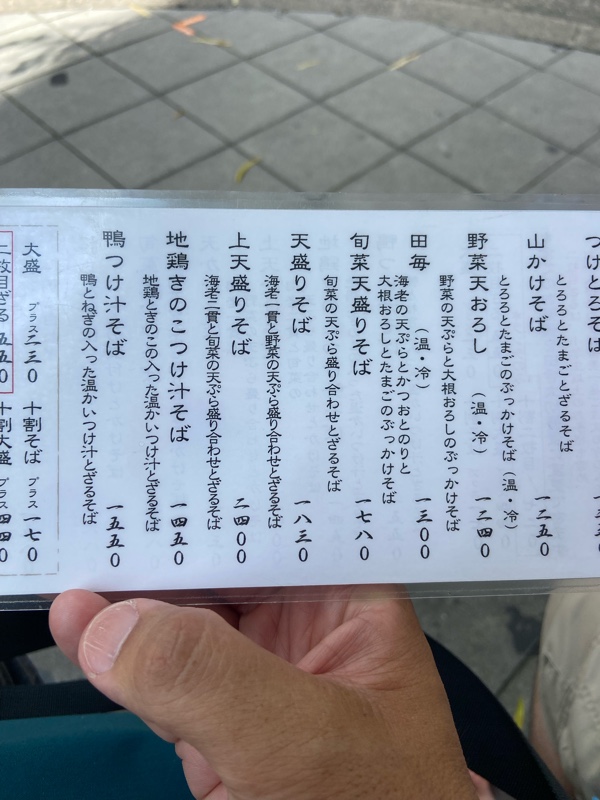 つけとろそば
とろろとたまごとざるそば
山かけそば
とろろとたまごのぶっかけそば(温・冷)
一二五〇
野菜天おろし(温・冷)
野菜の天ぷらと大根おろしのぶっかけそば
一二四〇
田毎(温・冷)
海老の天ぷらとかつおとのりと
大根おろしとたまごのぶっかけそば
一三〇〇
旬菜天盛りそば
旬菜の天ぷら盛り合わせとざるそば
一七八〇
天盛りそば
海老一貫と野菜の天ぷら盛り合わせとざるそば
一八三〇
上天盛りそば
海老二貫と旬菜の天ぷら盛り合わせとざるそば
二四〇〇
地鶏きのこつけ汁そば
地鶏ときのこの入った温かいつけ汁とざるそば
一四五〇
鴨つけ汁そば
鴨とねぎの入った温かいつけ汁とざるそば
一五五〇
大盛 プラス二三〇
十割そば プラス一七〇
二枚目ざる五五〇
十割大盛 プラス四四〇